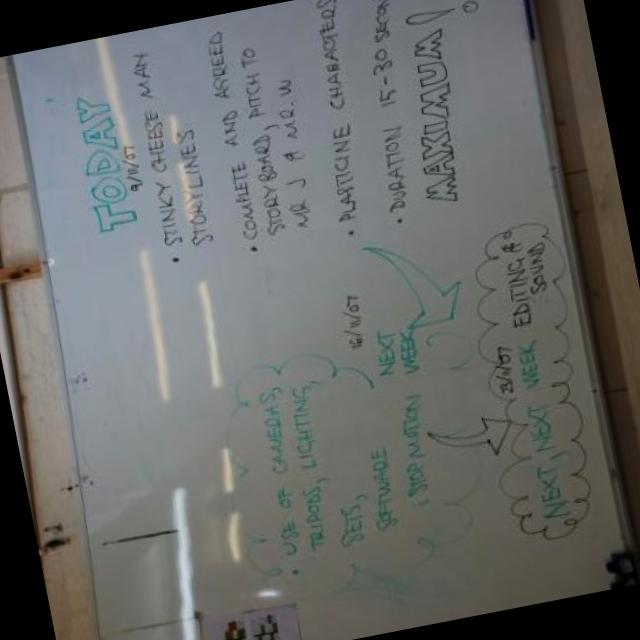 TODAY
9/11/07
• STINKY CHEESE MAN
STORYLINES
• COMPLETE AND AGREED
STORYBOARD, PITCH TO
MR J & MR. W
• PLASTICINE CHARACTERS
• DURATION 15-30
MAXIMUM!
16/11/07
NEXT
WEEK
• USE OF CAMERAS,
TRIPODS, LIGHTING,
SETS,
SOFTWARE
(STOP MOTION
EDITING &
SOUND
NEXT, NEXT WEEK